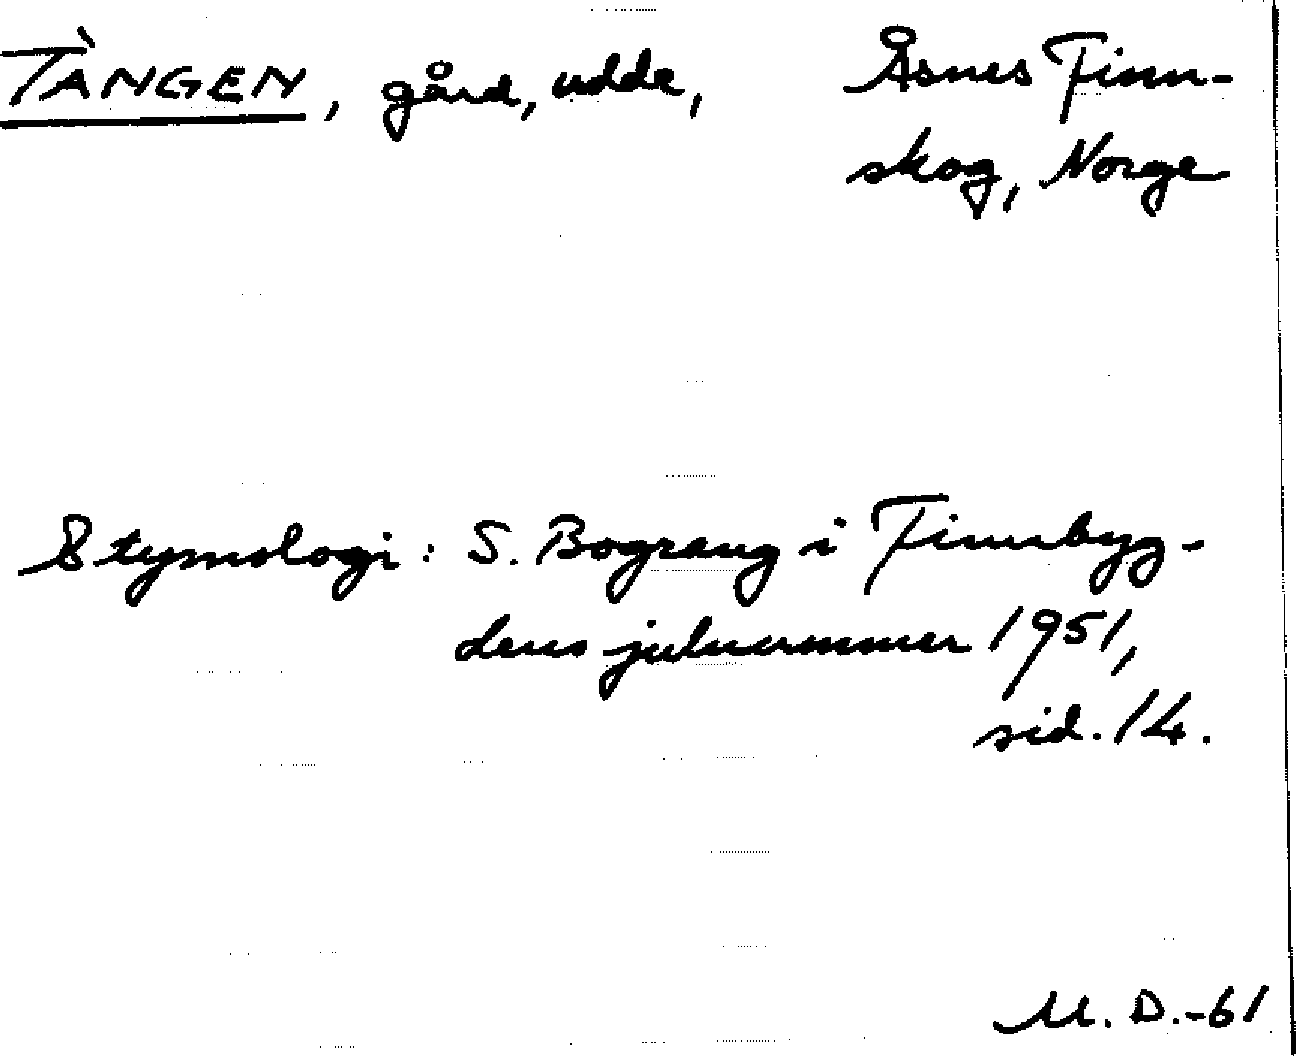 TÀNGEN, gård, udde, Åsnes Finn-
skog, Norge
Etymologi: S. Bograng i Finnbyg-
dens julnummer 1951,
sid. 14.
M. D. -61